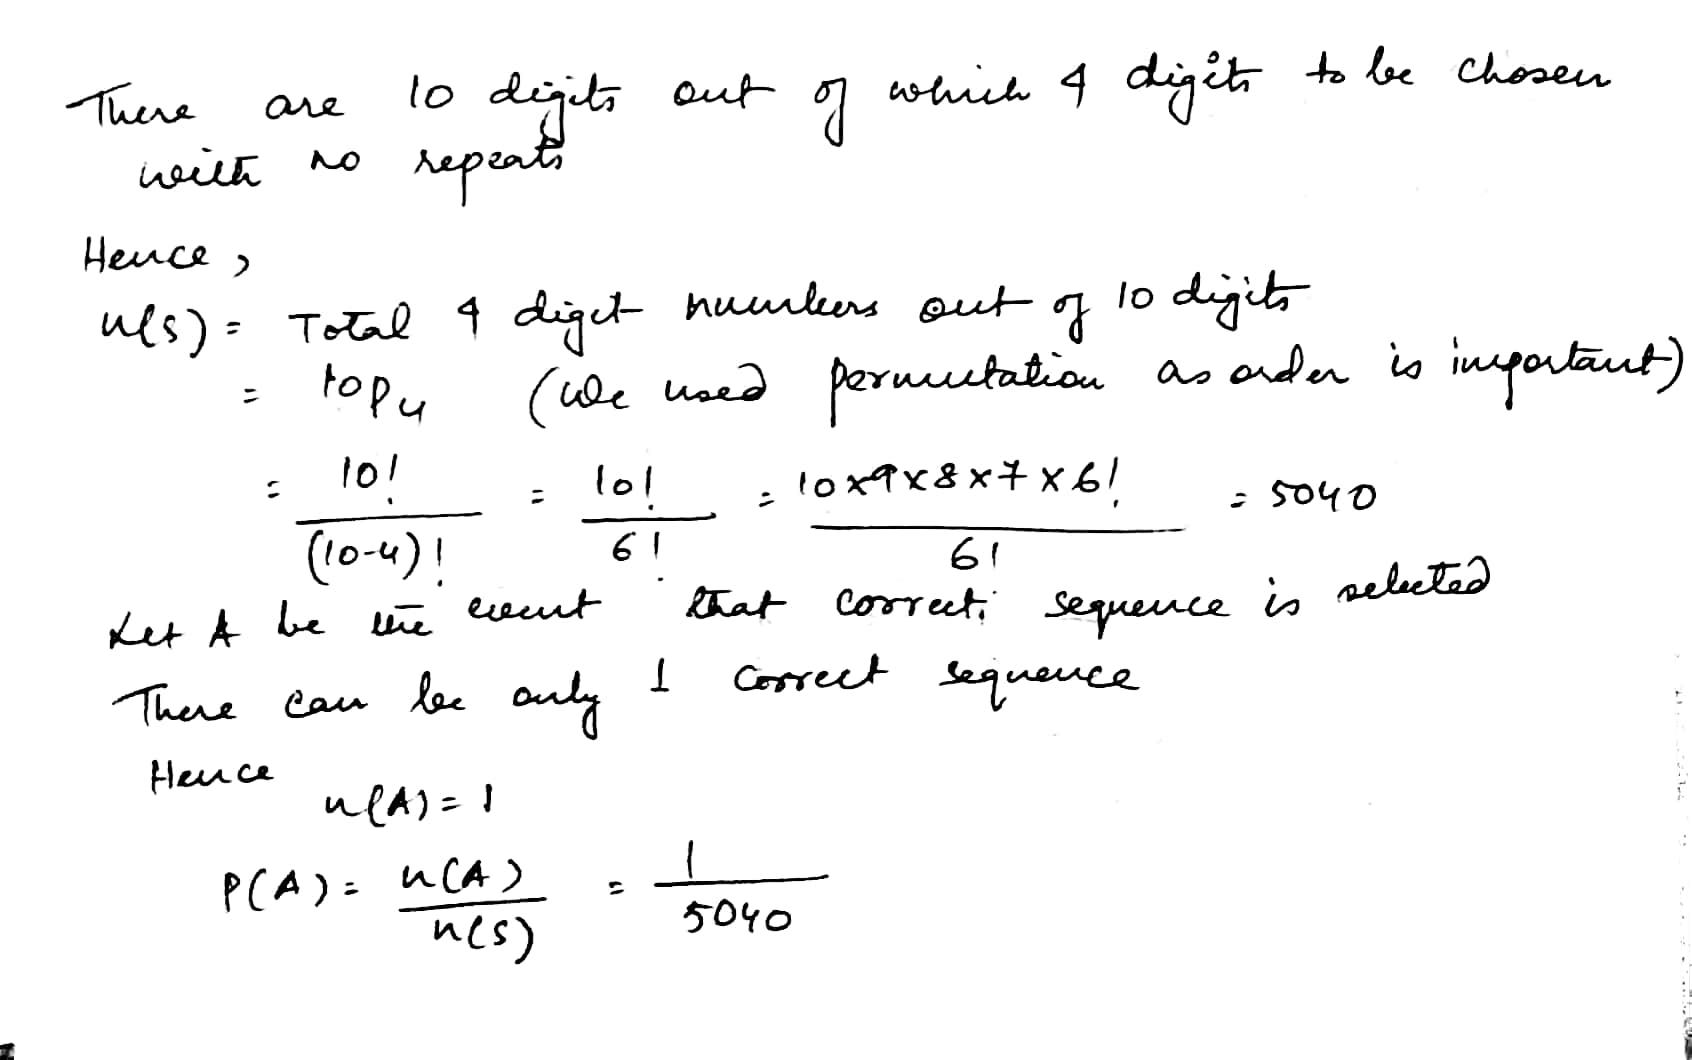 There are 10 digits out of which 4 digits to be chosen
with no repeats
Hence,
n(s) = Total 4 digit numbers out of 10 digits
= 10P4 (We used permutation as order is important)
= 10!/(10-4)! = 10!/6! = 10x9x8x7x6!/6! = 5040
Let A be the event that correct sequence is selected
There can be only 1 correct sequence
Hence
n(A) = 1
P(A) = n(A)/n(s) = 1/5040